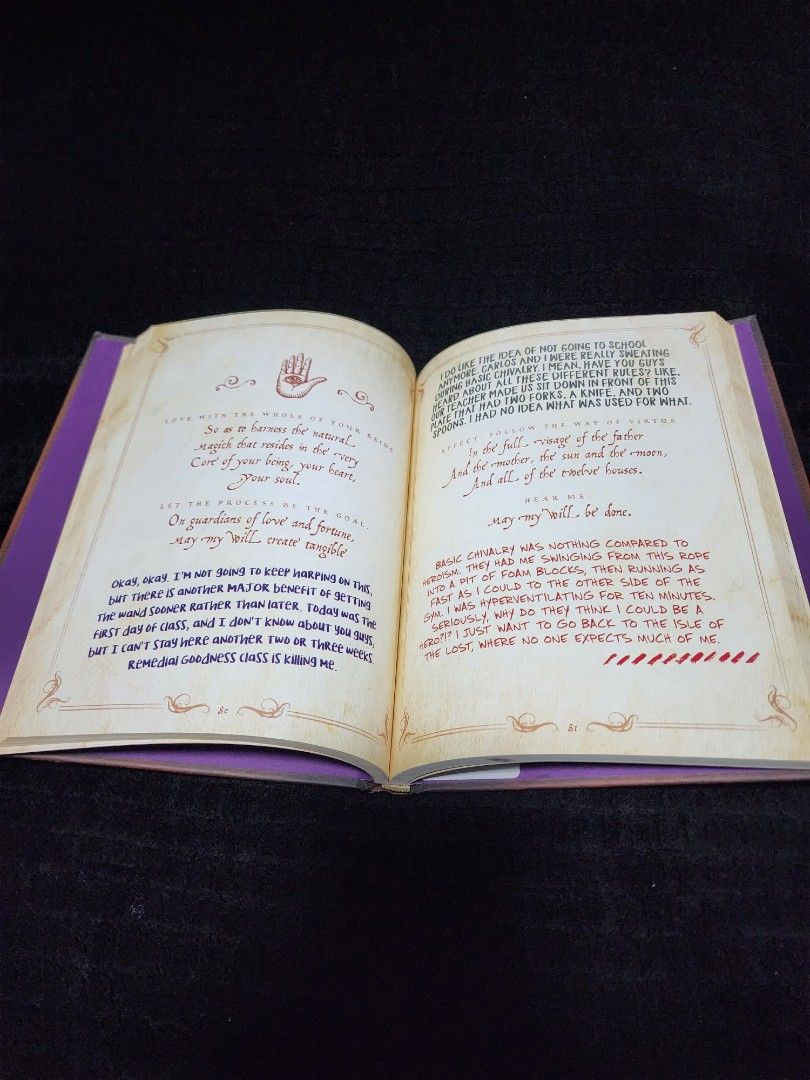 LOVE WITH THE WHOLE OF YOUR BEING
So as to harness the natural
Magick that resides in the very
Core of your being, your heart,
Your soul.
LET THE PROCESS BE THE GOAL.
On guardians of love and fortune,
May my Will create tangible
OKAY, OKAY. I'M NOT GOING TO KEEP HARPING ON THIS,
BUT THERE IS ANOTHER MAJOR BENEFIT OF GETTING
THE WAND SOONER RATHER THAN LATER. TODAY WAS THE
FIRST DAY OF CLASS, AND I DON'T KNOW ABOUT YOU GUYS,
BUT I CAN'T STAY HERE ANOTHER TWO OR THREE WEEKS.
REMEDIAL GOODNESS CLASS IS KILLING ME.
80
I DO LIKE THE IDEA OF NOT GOING TO SCHOOL
ANYMORE. CARLOS AND I WERE REALLY SWEATING
DURING BASIC CHIVALRY. I MEAN, HAVE YOU GUYS
HEARD ABOUT ALL THESE DIFFERENT RULES? LIKE,
OUR TEACHER MADE US SIT DOWN IN FRONT OF THIS
PLATE THAT HAD TWO FORKS, A KNIFE, AND TWO
SPOONS. I HAD NO IDEA WHAT WAS USED FOR WHAT.
EFFECT, FOLLOW THE WAY OF VIRTUE
In the full visage of the father
And the mother, the sun and the moon,
And all of the twelve houses.
HEAR ME.
May my Will be done.
BASIC CHIVALRY WAS NOTHING COMPARED TO
HEROISM. THEY HAD ME SWINGING FROM THIS ROPE
INTO A PIT OF FOAM BLOCKS, THEN RUNNING AS
FAST AS I COULD TO THE OTHER SIDE OF THE
GYM. I WAS HYPERVENTILATING FOR TEN MINUTES.
SERIOUSLY, WHY DO THEY THINK I COULD BE A
HERO?!? I JUST WANT TO GO BACK TO THE ISLE OF
THE LOST, WHERE NO ONE EXPECTS MUCH OF ME.
81